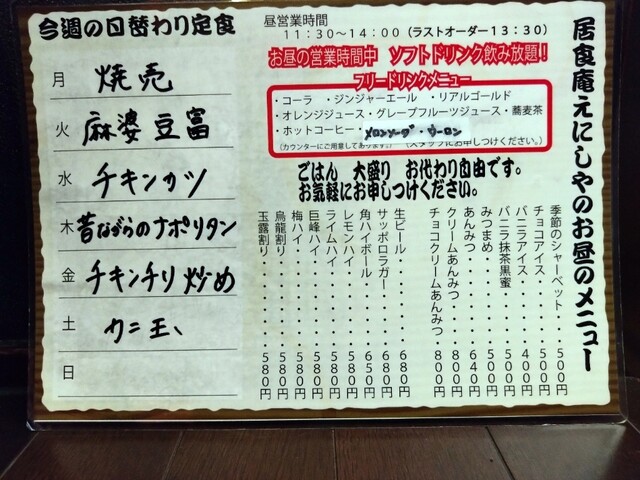 今週の日替わり定食
月 焼売
火 麻婆豆富
水 チキンカツ
木 昔ながらのナポリタン
金 チキンチリ炒め
土 カニ玉、
日
昼営業時間
11:30〜14:00(ラストオーダー13:30)
お昼の営業時間中 ソフトドリンク飲み放題!
フリードリンクメニュー
・コーラ ・ジンジャーエール ・リアルゴールド
・オレンジジュース・グレープフルーツジュース・蕎麦茶
・ホットコーヒー・メロンソーダ・ウーロン
(カウンターにご用意してあります。) (スタッフにお申しつけください。)
ごはん 大盛り お代わり自由です。
お気軽にお申しつけください。
居食庵えにしやのお昼のメニュー
季節のシャーベット・・500円
チョコアイス・・・・・500円
バニラアイス・・・・・400円
バニラ抹茶黒蜜・・・・500円
みつまめ・・・・・・・500円
あんみつ・・・・・・・640円
クリームあんみつ・・・800円
チョコクリームあんみつ・800円
生ビール・・・・・・・680円
サッポロラガー・・・・680円
角ハイボール・・・・・650円
レモンハイ・・・・・・580円
ライムハイ・・・・・・580円
巨峰ハイ・・・・・・・580円
梅ハイ・・・・・・・・580円
烏龍割り・・・・・・・580円
玉露割り・・・・・・・580円